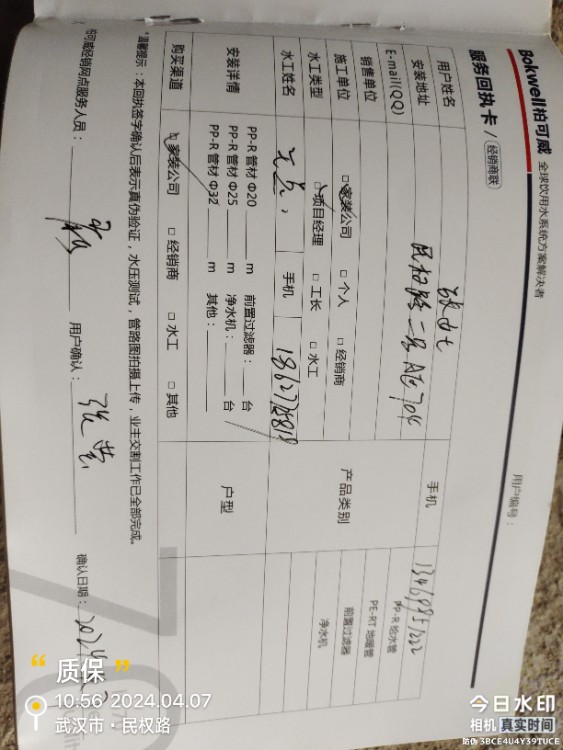 Bokwell柏可威 全球饮用水系统方案解决者
服务回执卡 / 经销商联
用户编号：
用户姓名
手机
安装地址 民权路二号A区704
E-mail(QQ)
销售单位
施工单位 □家装公司 □ 个人 □ 经销商
水工类型 □项目经理 □ 工长 □ 水工
水工姓名 手机
产品类别
PP-R 给水管
PE-RT 地暖管
前置过滤器
净水机
安装详情
PP-R 管材 Φ20 m 前置过滤器： 台
PP-R 管材 Φ25 m 净水机： 台
PP-R 管材 Φ32 m 其他：
户型
购买渠道 □家装公司 □ 经销商 □ 水工 □ 其他
*温馨提示：本回执签字确认后表示真伪验证，水压测试，管路图拍摄上传，业主交割工作已全部完成。
柏可威经销网点服务人员： 用户确认： 确认日期：
“ 质保 ”
10:56 2024.04.07
武汉市·民权路
今日水印
相机 真实时间
防伪 3BCE4U4Y39TUCE